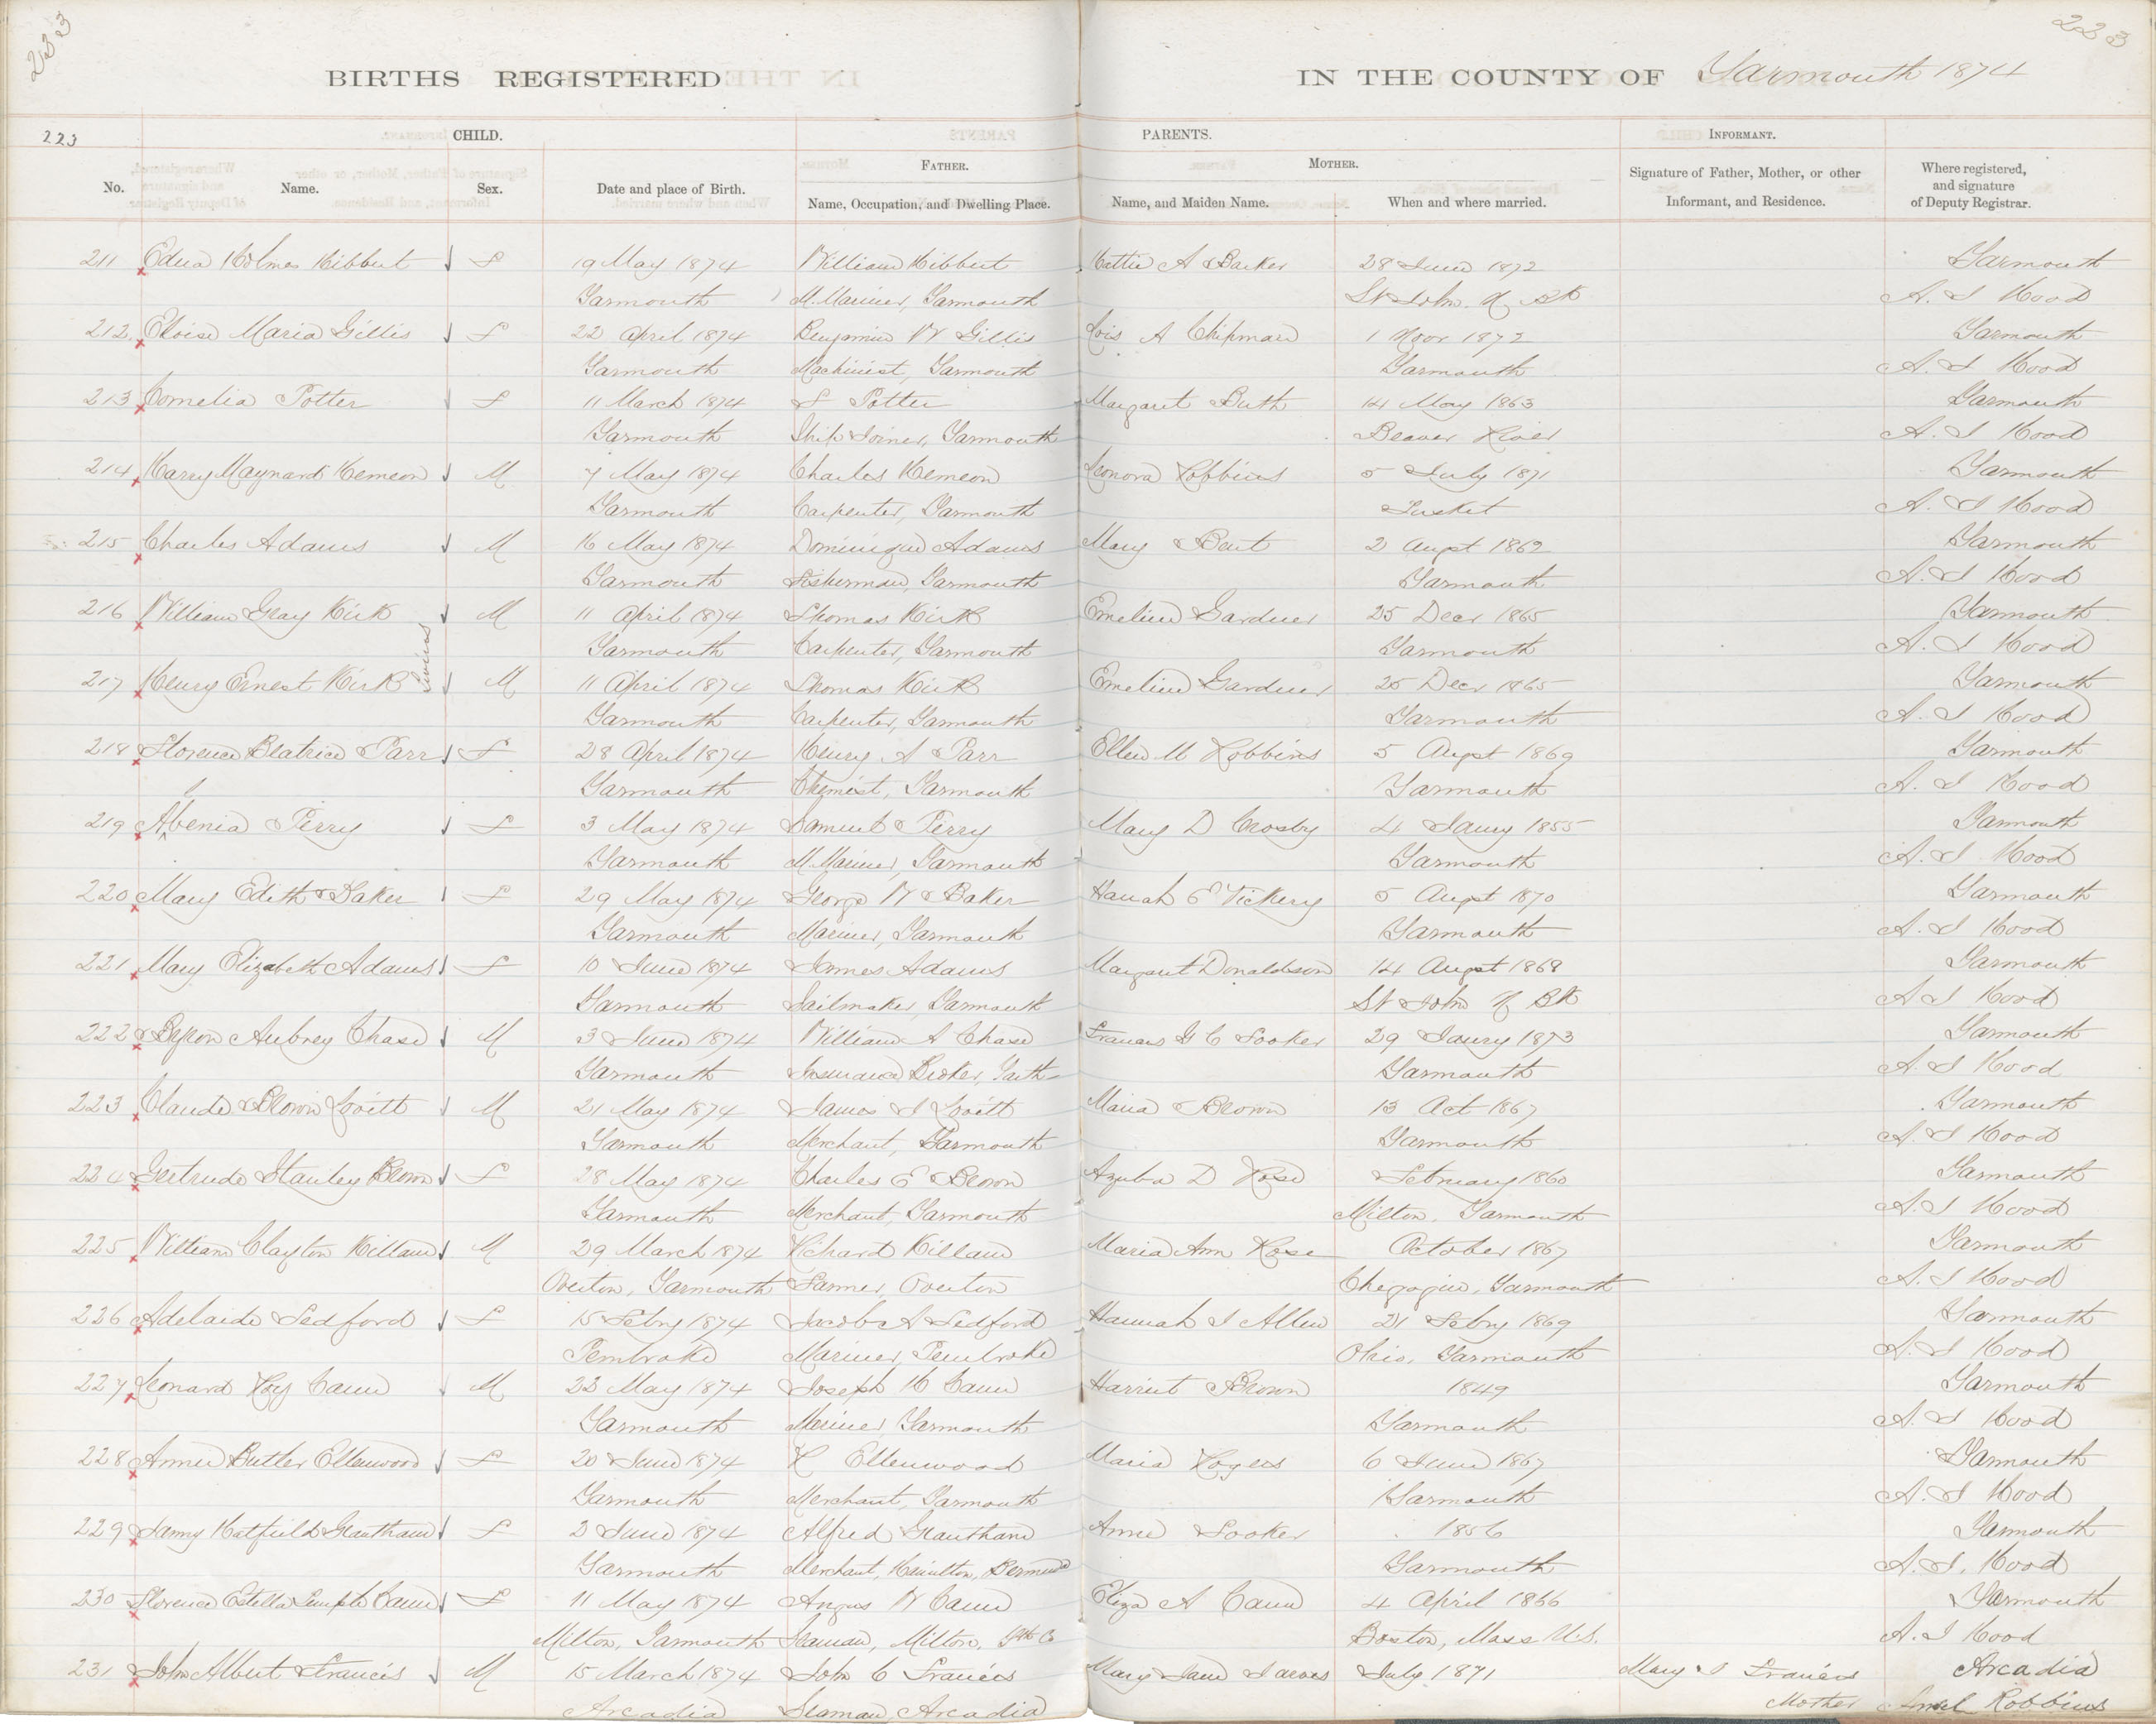 233
223
BIRTHS REGISTERED
IN THE COUNTY OF Yarmouth 1874
223
CHILD.
PARENTS.
INFORMANT.
No. Name. Sex. Date and place of Birth.
FATHER.
Name, Occupation, and Dwelling Place.
MOTHER.
Name, and Maiden Name. When and where married.
Signature of Father, Mother, or other
Informant, and Residence.
Where registered,
and signature
of Deputy Registrar.
211 Edna Holmes Hibbert F 19 May 1874 William Hibbert Hattie A Barker 28 June 1872 Yarmouth
Yarmouth M. Mariner, Yarmouth St John. N. Bk A. J Hood
212 Eloise Maria Gillis F 22 April 1874 Benjamin W Gillis Lois A Chipman 1 Novr 1872 Yarmouth
Yarmouth Machinist, Yarmouth Yarmouth A. J Hood
213 Cornelia Potter F 11 March 1874 F Potter Margaret 14 May 1863 Yarmouth
Yarmouth Ship Joiner, Yarmouth Beaver River A. J Hood
214 Harry Maynard Hemeon M 7 May 1874 Charles Hemeon Leonora Robbins 5 July 1871 Yarmouth
Yarmouth Carpenter, Yarmouth Tusket A. J Hood
215 Charles Adams M 16 May 1874 Dominique Adams Mary 2 Augst 1862 Yarmouth
Yarmouth Fisherman, Yarmouth Yarmouth A. J Hood
216 William Gray Kirk M 11 April 1874 Thomas Kirk Emeline Gardner 25 Decr 1865 Yarmouth
Yarmouth Carpenter, Yarmouth Yarmouth A. J Hood
217 Henry Ernest Kirk M 11 April 1874 Thomas Kirk Emeline Gardner 25 Decr 1865 Yarmouth
Yarmouth Carpenter, Yarmouth Yarmouth A. J Hood
218 Florence Beatrice Parr F 28 April 1874 Henry A Parr Ellen M Robbins 5 Augst 1869 Yarmouth
Yarmouth Chemist, Yarmouth Yarmouth A. J Hood
219 Perry F 3 May 1874 Samuel Perry Mary D Crosby 4 Jany 1855 Yarmouth
Yarmouth M. Mariner, Yarmouth Yarmouth A. J. Hood
220 Mary Edith Baker F 29 May 1874 George W Baker Hanah E Vickery 5 Augst 1870 Yarmouth
Yarmouth Mariner, Yarmouth Yarmouth A. J Hood
221 Mary Elizabeth Adams F 10 June 1874 James Adams Margaret Donaldson 14 Augst 1868 Yarmouth
Yarmouth Sailmaker, Yarmouth St John N Bk A J Hood
222 Byron Aubrey Chase M 3 June 1874 William A Chase Frances G C Tooker 29 Jany 1873 Yarmouth
Yarmouth Insurance Broker, Yarth Yarmouth A. J Hood
223 Claude Brown Lovitt M 21 May 1874 James J Lovitt Maria Brown 13 Oct 1867 Yarmouth
Yarmouth Merchant, Yarmouth Yarmouth A. J Hood
224 Gertrude Stanley Brown F 28 May 1874 Charles E Brown Azuba D Rose February 1860 Yarmouth
Yarmouth Merchant, Yarmouth Milton, Yarmouth A. J Hood
225 William Clayton Killam M 29 March 1874 Richard Killam Maria Ann Rose October 1867 Yarmouth
Overton, Yarmouth Farmer, Overton Chegoggin, Yarmouth A. J Hood
226 Adelaide Tedford F 15 Febry 1874 Jacob A Tedford Hannah J Allen 21 Febry 1869 Yarmouth
Pembroke Mariner, Pembroke Ohio, Yarmouth A. J Hood
227 Leonard Roy Cann M 22 May 1874 Joseph H Cann Harriet Brown 1849 Yarmouth
Yarmouth Mariner, Yarmouth Yarmouth A. J Hood
228 Annie Butler Ellenwood F 20 June 1874 H Ellenwood Maria Rogers 6 June 1867 Yarmouth
Yarmouth Merchant, Yarmouth Yarmouth A. J Hood
229 Fanny Hatfield Grantham F 2 June 1874 Alfred Grantham Annie Tooker 1856 Yarmouth
Yarmouth Merchant, Hamilton, Bermuda Yarmouth A. J. Hood
230 Florence Estella Temple Cann F 11 May 1874 Angus W Cann Eliza A Cann 4 April 1866 Yarmouth
Milton, Yarmouth Seaman, Milton, Yth Co Boston, Mass U.S. A. J Hood
231 John Albert Francis M 15 March 1874 John C Francis Mary Jane July 1871 Mary J Francis Arcadia
Arcadia Seaman, Arcadia Mother Robbins